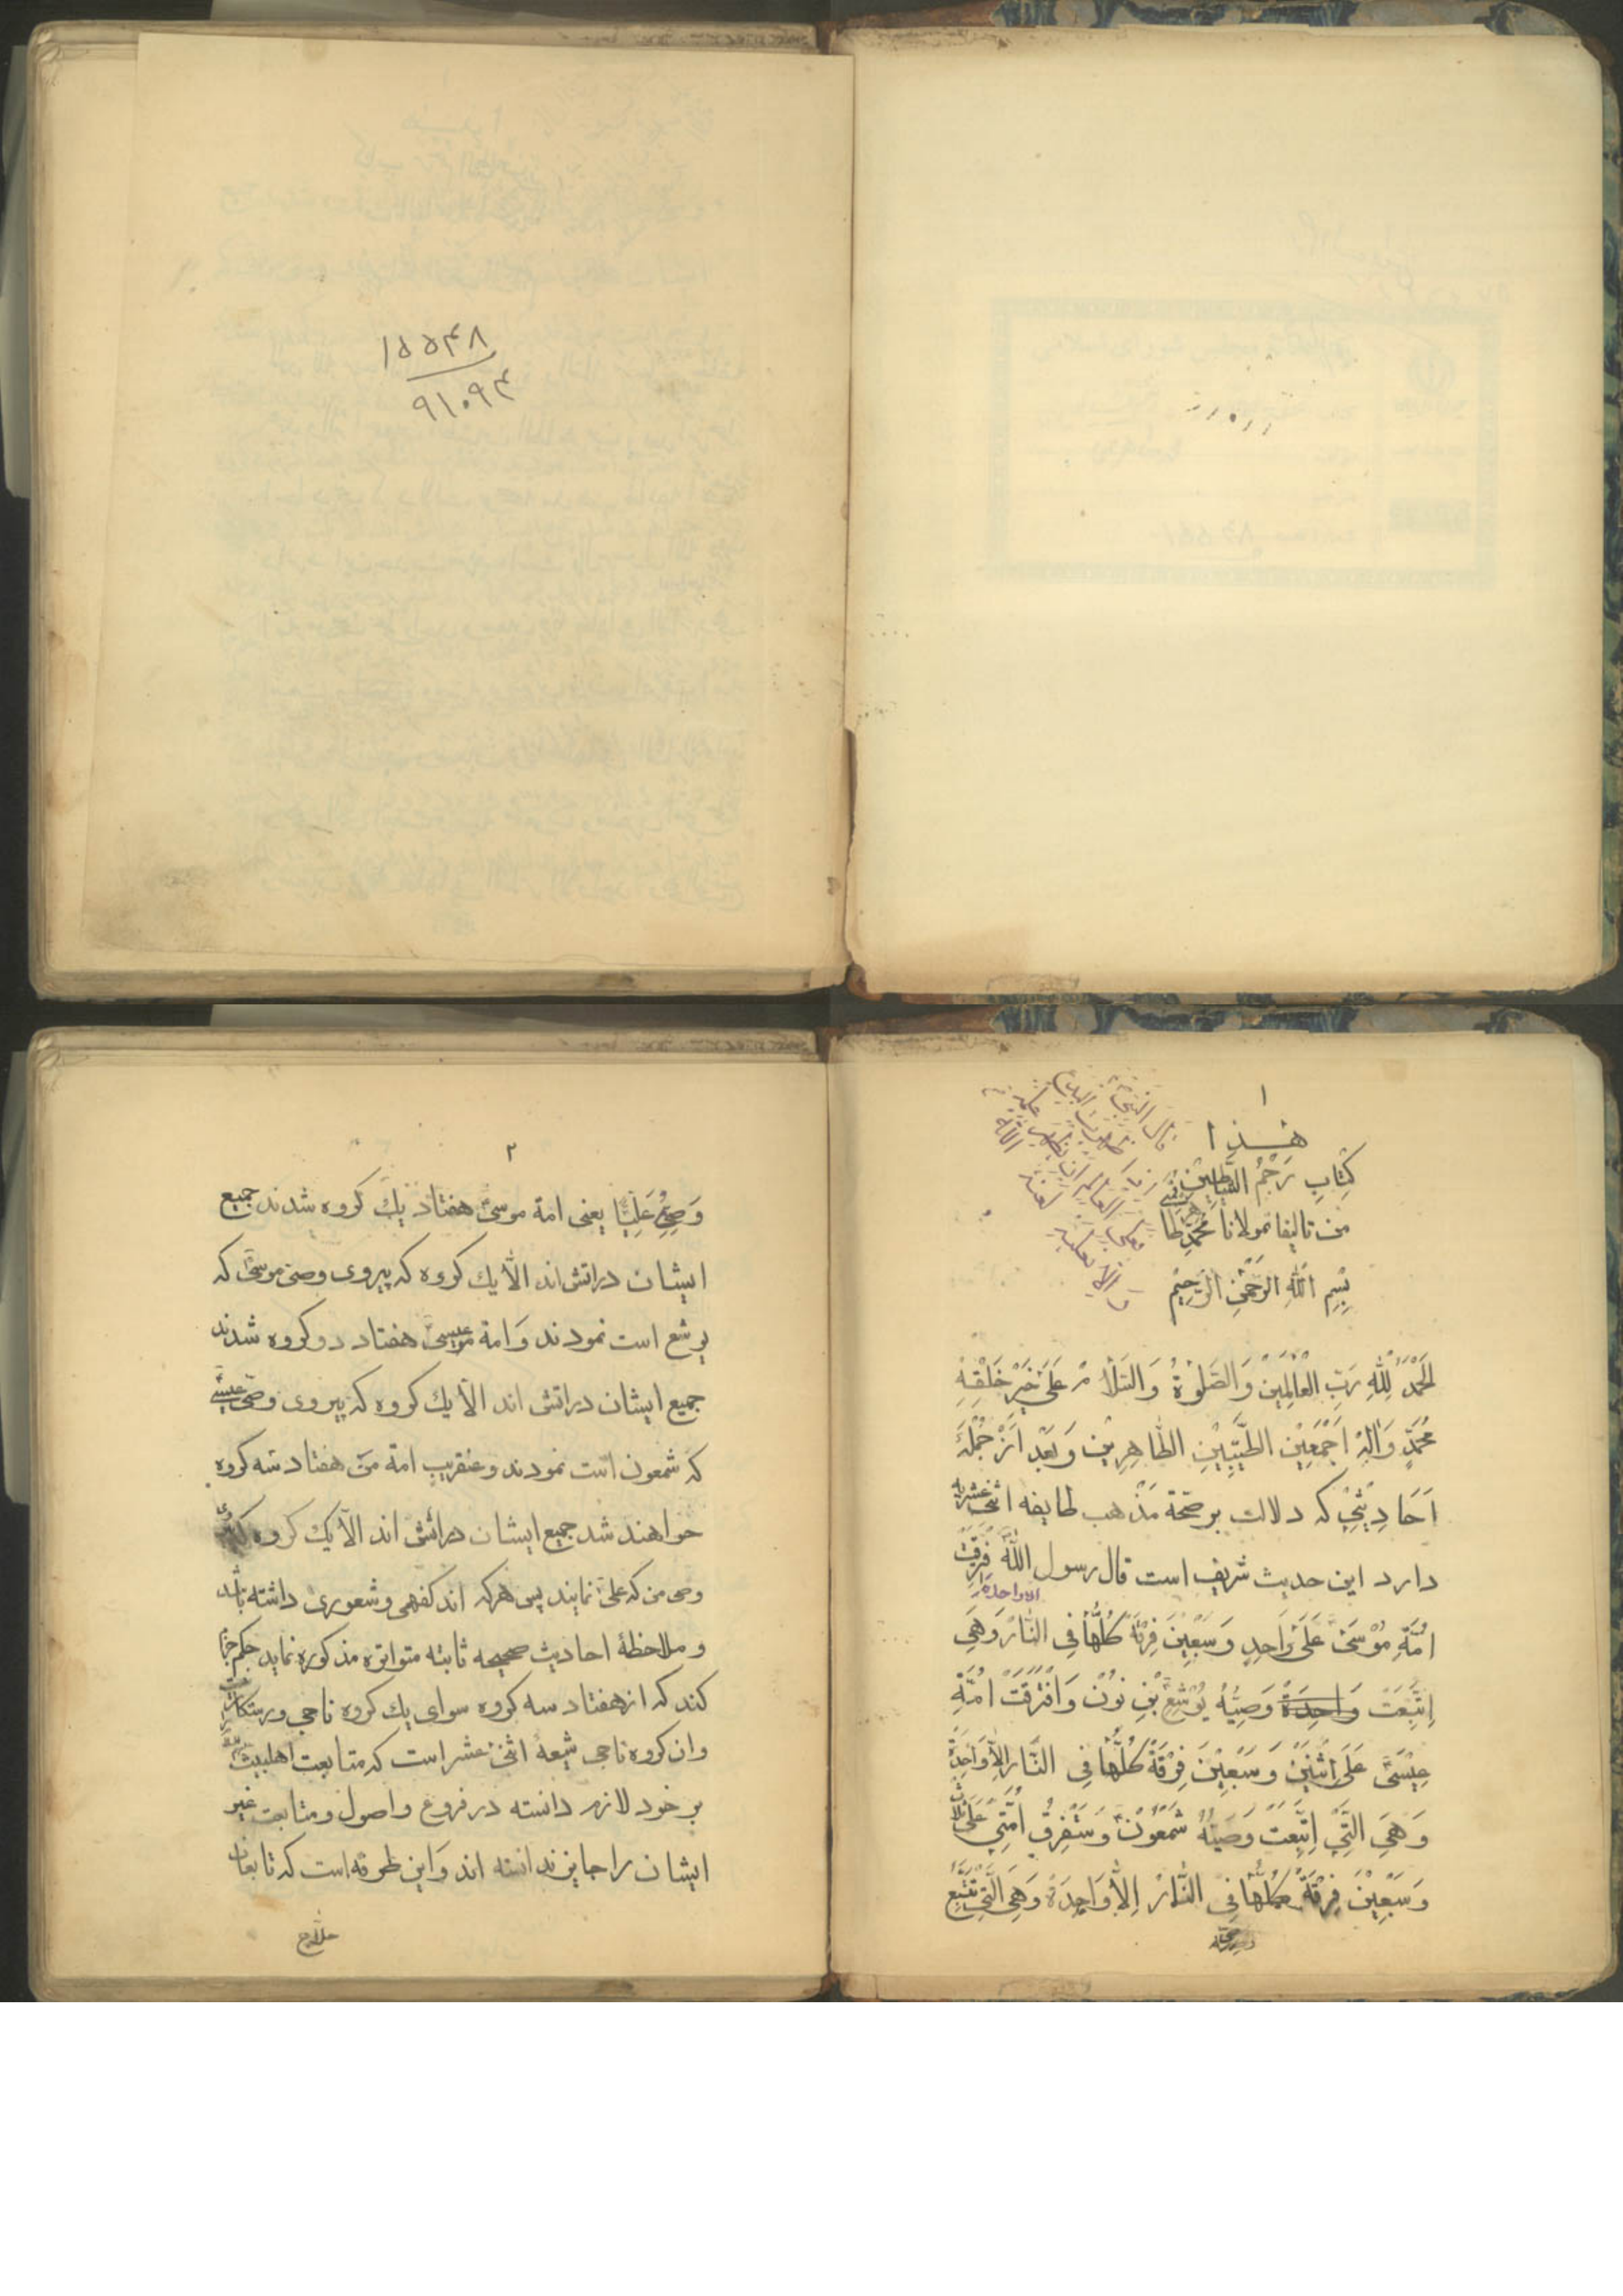 ۱۵۵۴۸
۹۱۰۹۴
۱
هذا
كِتابِ رَجْمُ الشَّياطين
من تاليفا مولانا مُحَمَّد طا
بِسْمِ اللهِ الرَّحْمنِ الرَّحِيْمِ
قال النبي اذا ظهرت البدع
فليظهر العالم علمه
و الا فعليه لعنة الله
اَلْحَمْدُ لِلّٰهِ رَبِّ الْعٰالَمِيْنَ وَالصَّلٰوةُ وَالسَّلٰامُ عَلىٰ خَيْرِ خَلْقِهِ
مُحَمَّدٍ وَاٰلِهِ اَجْمَعِيْنَ الطَّيِّبِيْنَ الطّاهِرِيْنَ وَبَعْد اَزْ جُمْلَهُ
اَحَادِيْثِيْ كه دلالت بر صحّة مَذْهب طايفه اثنى عشريه
دارد اين حديث شريف است قال رسول اللهِ فَرِقَتْ
الا واحدة
اُمَّةِ مُوْسَىٰ عَلىٰ وَاحِدٍ وَسَبْعِيْنَ فِرْقَةً كُلُّهٰا فِى النّٰارِ وَهِيَ
اِتَّبَعَتْ وَاحِدَةً وَصِيَّهُ يُوْشَعِ بْنِ نُوْنْ وَافْتَرَقَتْ اُمَّةِ
عِيْسىٰ عَلىٰ اِثْنَيْنِ وَسَبْعِيْنَ فِرْقَةً كُلُّهٰا فِى النّٰارِ اِلاّٰ وَاحِدَةً
وَهِيَ الَّتِيْ اِتَّبَعَتْ وَصِيَّهُ شَمْعُوْنْ وَسَتَفرِقُ اُمَّتِيْ عَلىٰ ثلاث
وَسَبْعِيْنَ فِرْقَةً كُلُّهٰا فِى النّٰارْ اِلاّٰ وَاحِدَةً وَهِيَ الَّتِيْ تَتَّبِعُ
۲
وَصِيِّي عَلِيّاً يعنى امة موسى هفتاد يك كروه شدند جميع
ايشان در اتش اند الّا يك كروه كه پيروى وصى موسى كه
يوشع است نمودند وَ امة عيسى هفتاد دو كروه شدند
جميع ايشان در اتش اند الّا يك كروه كه پيروى وصى عيسى
كه شمعون است نمودند و عنقريب امة من هفتاد سه كروه
خواهند شد جميع ايشان در اتش اند الّا يك كروه كه
وصى من كه على نمايند پس هركه اندك فهمى و شعورى داشته باشد
و ملاحظهٔ احاديث صحيحه ثابته متواتره مذكوره نمايد حكم جزما
كند كه از هفتاد سه كروه سواى يك كروه ناجى و رستكار نيست
وان كروه ناجى شيعهٔ اثنى عشر است كه متابعت اهلبيت
بر خود لازم دانسته در فروع و اصول و متابعت غير
ايشان را جايز ندانسته اند وَ اين طريقه است كه تابعان